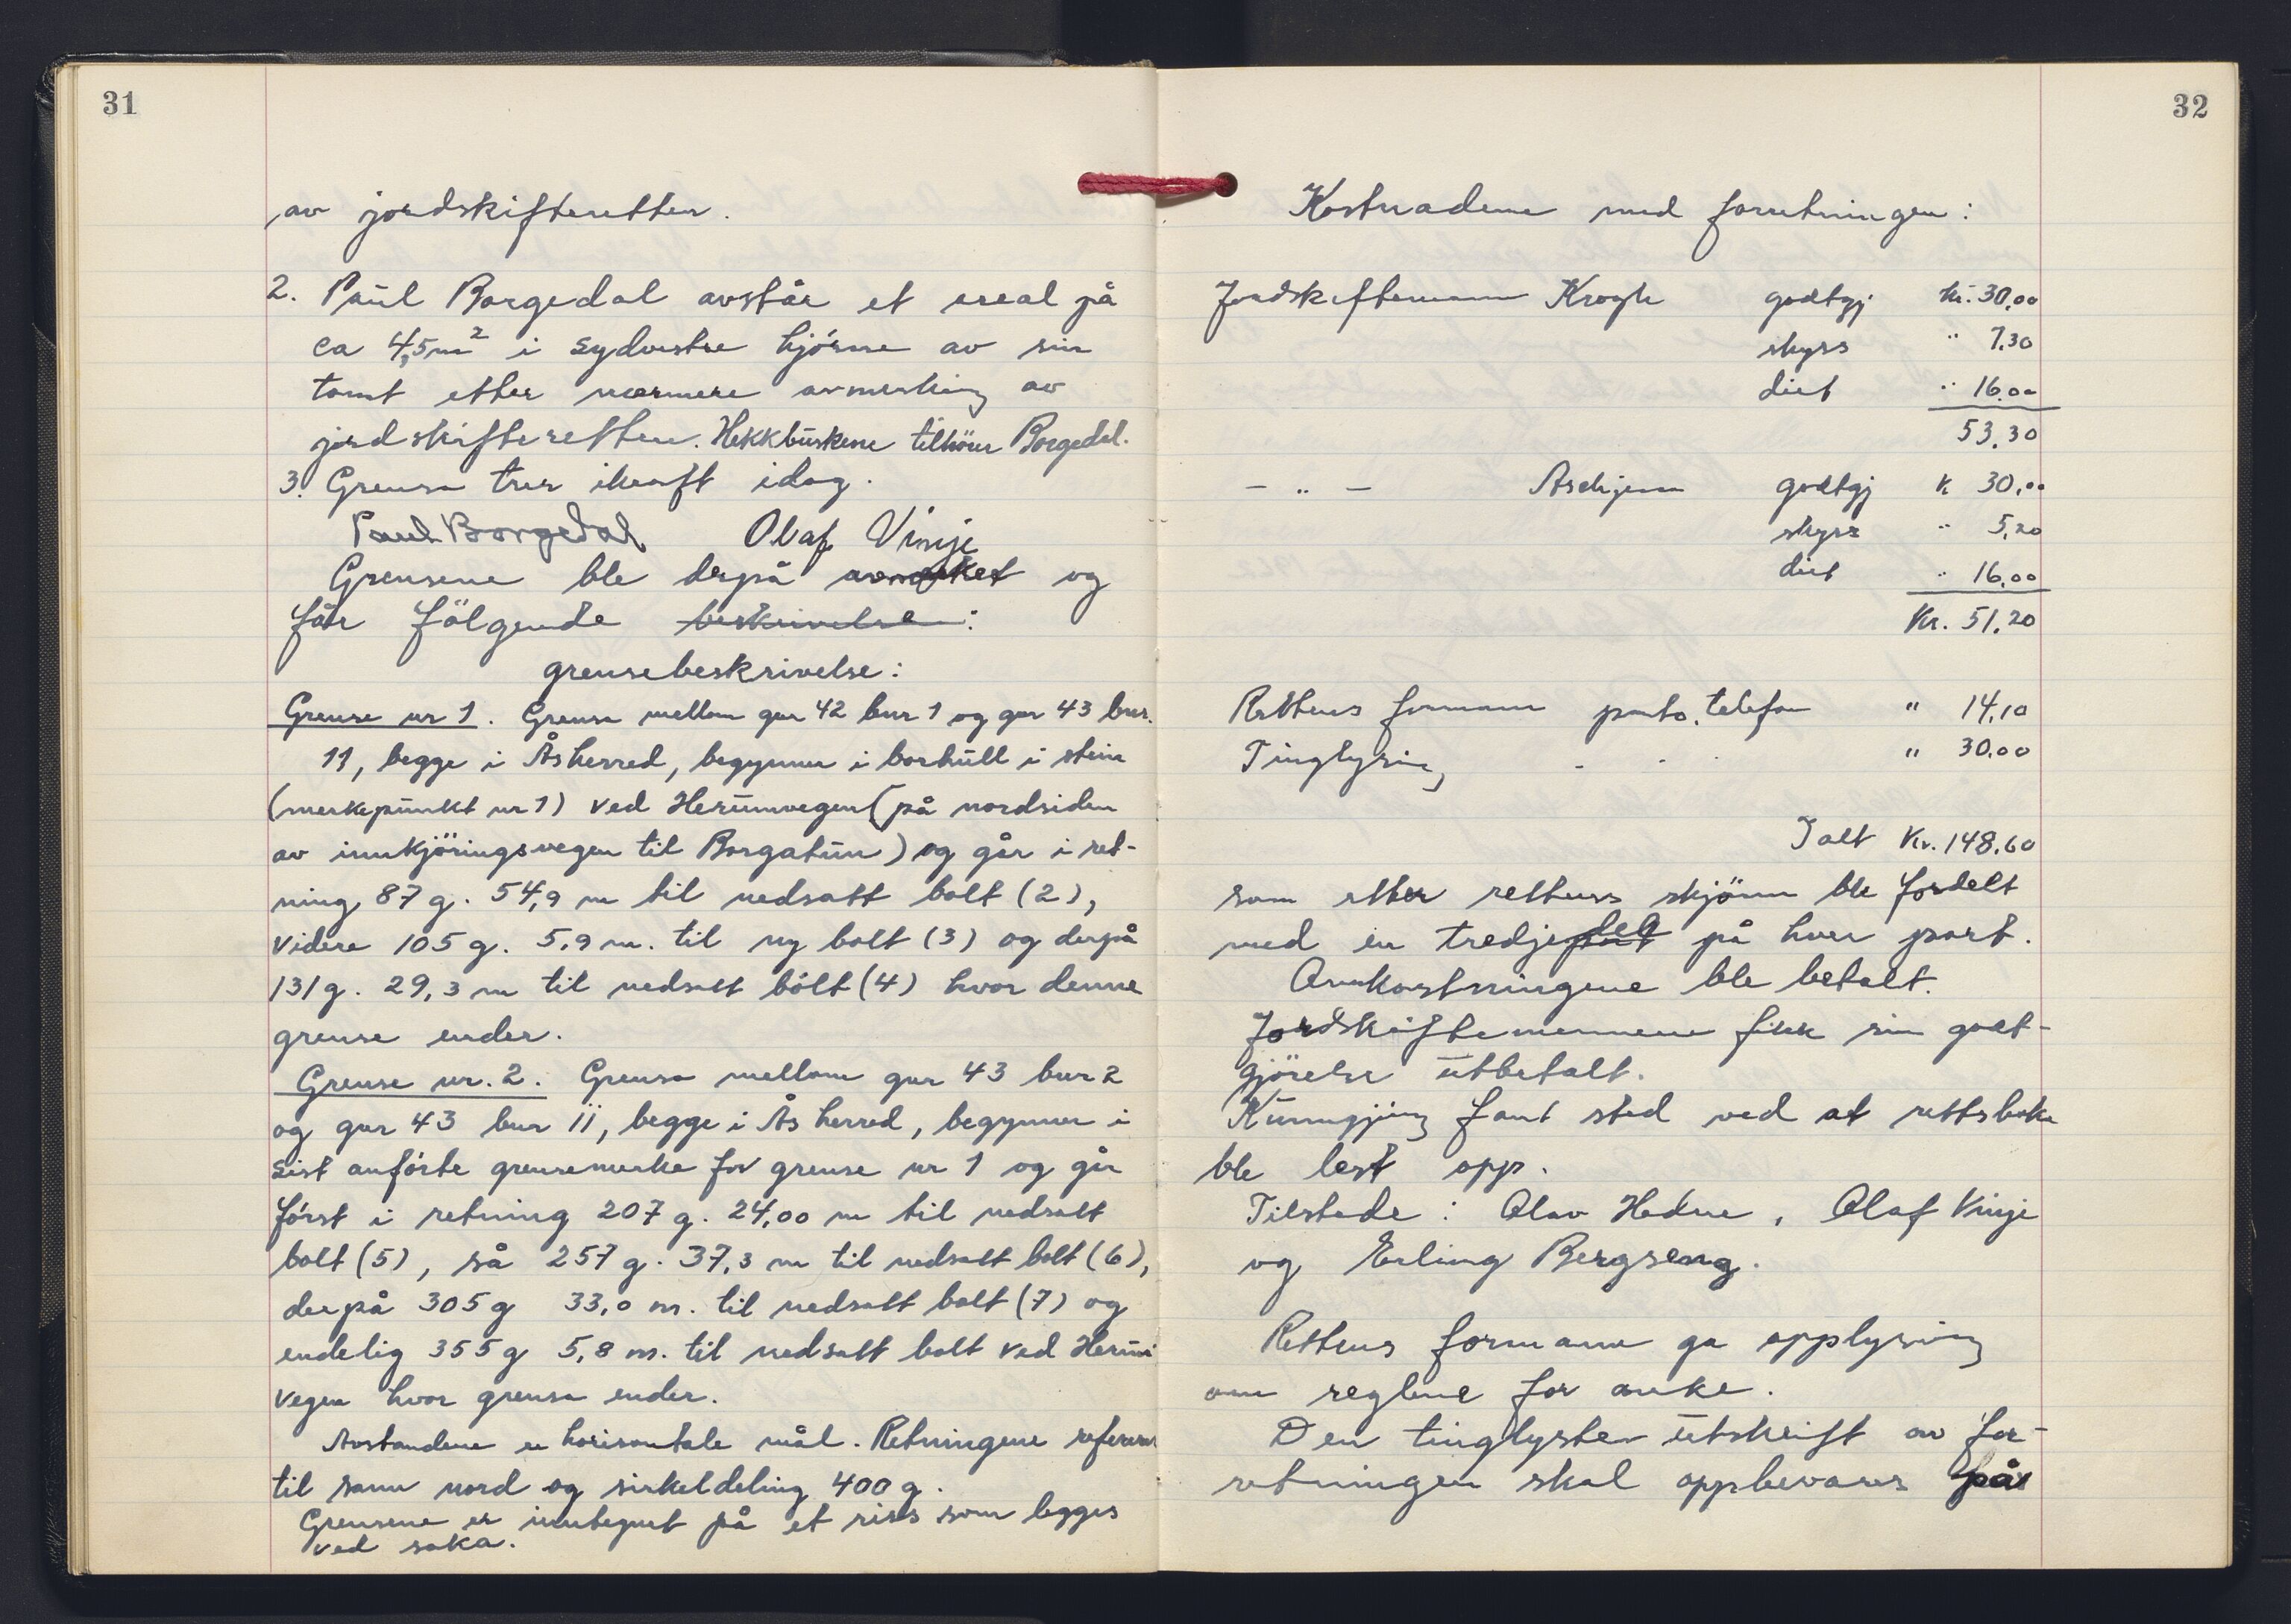 31
av jordskifteretten.
2. Paul Borgedal avstår et areal på
ca 4,5 m² i sydvestre hjørne av sin
tomt etter nærmere avmerking av
jordskifteretten. Hekkbuskene tilhører Borgedal.
3. Grensa trer ikraft idag.
Paul Borgedal Olaf Vinje
Grensene ble derpå avmerket og
får følgende beskrivelse:
grensebeskrivelse:
Grense nr 1. Grensa mellom gnr 42 bnr 1 og gnr 43 bnr.
11, begge i Ås herred, begynner i borhull i stein
(merkepunkt nr 1) ved Herumvegen (på nordsiden
av innkjøringsvegen til Borgatun) og går i ret-
ning 87 g. 54,9 m til nedsatt bolt (2),
videre 105 g. 5,9 m. til ny bolt (3) og derpå
131 g. 29,3 m til nedsatt bolt (4) hvor denne
grense ender.
Grense nr. 2. Grensa mellom gnr 43 bnr 2
og gnr 43 bnr 11, begge i Ås herred, begynner i
sist anførte grensemerke for grense nr 1 og går
først i retning 207 g. 24,00 m til nedsatt
bolt (5), så 257 g. 37,3 m til nedsatt bolt (6),
derpå 305 g 33,0 m. til nedsatt bolt (7) og
endelig 355 g 5,8 m. til nedsatt bolt ved Herum
vegen hvor grensa ender.
Avstandene er horisontale mål. Retningene referer
til sann nord og sirkeldeling 400 g.
Grensene er inntegnet på et riss som legges
ved saka.
32
Kostnadene med forretningen:
Jordskiftemann Krogh godtgj kr. 30,00
skyss " 7.30
diet " 16.00
53.30
— " — Aschjem godtgj k 30,00
skyss " 5,20
diet " 16,00
Kr. 51,20
Rettens formann porto, telefon " 14,10
Tinglysing " 30.00
Ialt Kr. 148.60
som etter rettens skjønn ble fordelt
med en tredjedel på hver part.
Omkostningene ble betalt.
Jordskiftemennene fikk sin godt-
gjørelse utbetalt.
Kunngjing fant sted ved at rettsboka
ble lest opp.
Tilstede: Olav Hedne, Olaf Vinje
og Erling Bergseng.
Rettens formann ga opplysning
om reglene for anke.
Den tinglyste utskrift av for-
retningen skal oppbevares på